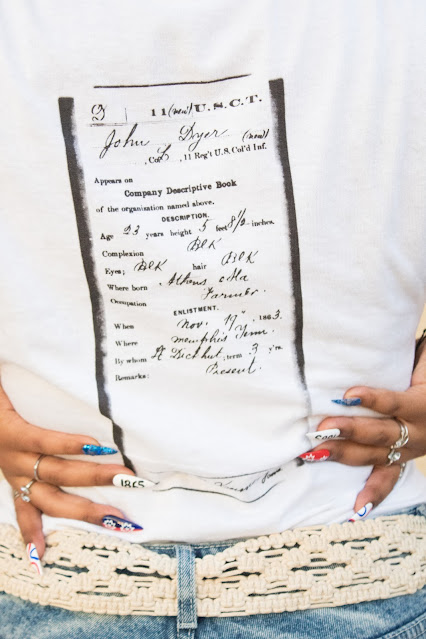 D 11 (new) U.S.C.T.
John Dyer (new)
Co. L, 11 Reg't U.S. Col'd Inf.
Appears on
Company Descriptive Book
of the organization named above.
DESCRIPTION.
Age 23 years height 5 feet 8 1/2 inches.
Complexion Blk
Eyes; Blk hair Blk
Where born Athens Ala
Occupation Farmer.
ENLISTMENT.
When Nov. 19, 1863
Where Memphis Tenn.
By whom ; term 3 y'rs.
Remarks: Present.
1865